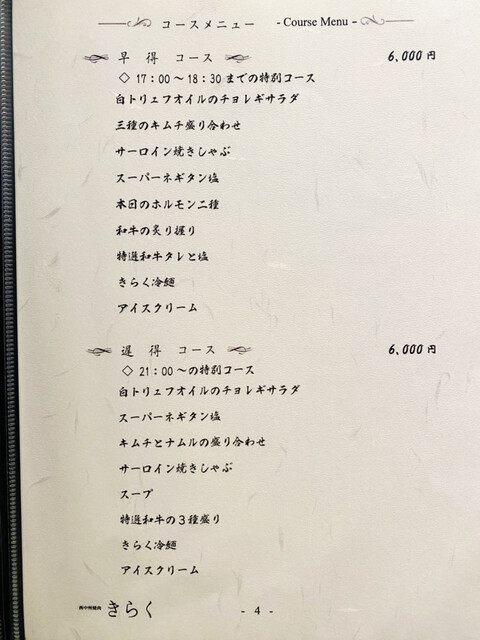 コースメニュー - Course Menu -
早 得 コース 6,000 円
◇ 17:00~18:30 までの特別コース
白トリュフオイルのチョレギサラダ
三種のキムチ盛り合わせ
サーロイン焼きしゃぶ
スーパーネギタン塩
本日のホルモン二種
和牛の炙り握り
特選和牛タレと塩
きらく冷麺
アイスクリーム
遅 得 コース 6,000 円
◇ 21:00~の特別コース
白トリュフオイルのチョレギサラダ
スーパーネギタン塩
キムチとナムルの盛り合わせ
サーロイン焼きしゃぶ
スープ
特選和牛の3種盛り
きらく冷麺
アイスクリーム
西中洲焼肉 きらく - 4 -